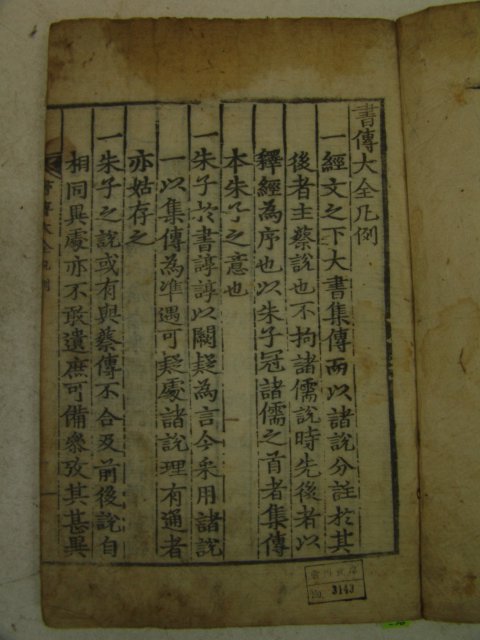 書傳大全凡例
一經文之下大書集傳而以諸說分註於其
後者主蔡說也不拘諸儒說時先後者以
釋經為序也以朱子冠諸儒之首者集傳
本朱子之意也
一朱子於書諄諄以闕疑為言今采用諸說
一以集傳為準遇可疑處諸說理有通者
亦姑存之
一朱子之說或有與蔡傳不合及前後說自
相同異處亦不敢遺庶可備衆攷其甚異
書傳大全凡例
3143